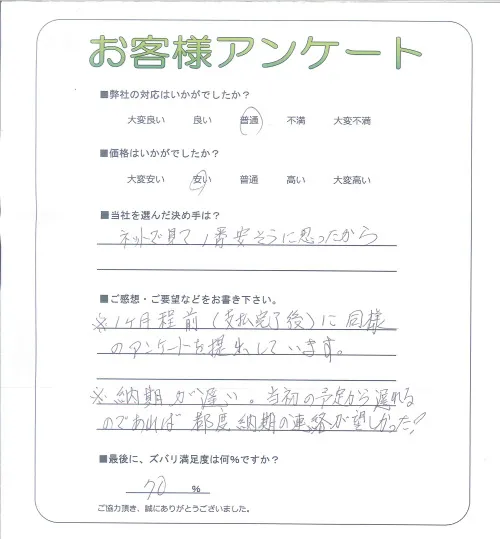 お客様アンケート
■弊社の対応はいかがでしたか？
大変良い 良い 普通 不満 大変不満
■価格はいかがでしたか？
大変安い 安い 普通 高い 大変高い
■当社を選んだ決め手は？
ネットで見て1番安そうに思ったから
■ご感想・ご要望などをお書き下さい。
※1ヶ月程前(支払完了後)に同様
のアンケートを提出しています。
※納期が遅い。当初の予定から遅れる
のであれば都度納期の連絡が望しかった!
■最後に、ズバリ満足度は何%ですか？
70 %
ご協力頂き、誠にありがとうございました。